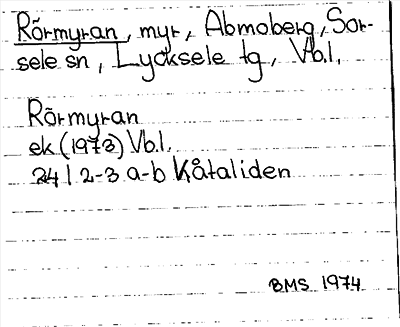 Rörmyran, myr, Abmoberg, Sor-
sele sn, Lycksele tg, Vb.l.
Rörmyran
ek (1973) Vb.l.
24 I 2-3 a-b Kåtaliden
BMS 1974